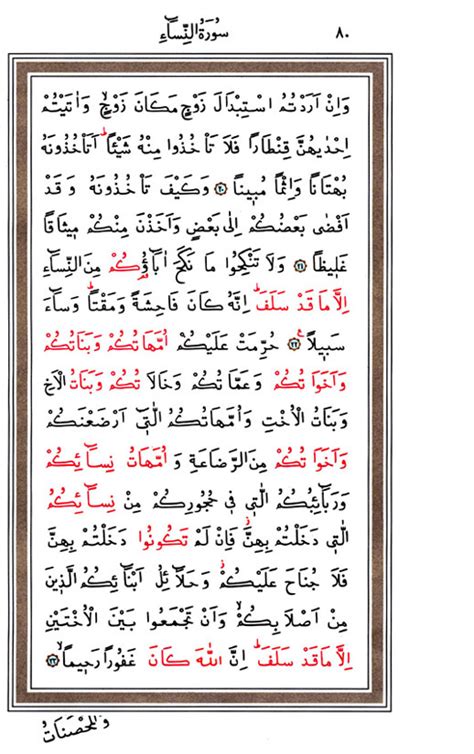 سُورَةُ النِّسَاءِ ٨٠
وَاِنْ اَرَدْتُمُ اسْتِبْدَالَ زَوْجٍ مَكَانَ زَوْجٍۙ وَاٰتَيْتُمْ
اِحْدٰيهُنَّ قِنْطَاراً فَلَا تَأْخُذُوا مِنْهُ شَيْـٔاًۜ اَتَأْخُذُونَهُ
بُهْتَاناً وَاِثْماً مُبٖيناً ﴿٢٠﴾ وَكَيْفَ تَأْخُذُونَهُ وَقَدْ
اَفْضٰى بَعْضُكُمْ اِلٰى بَعْضٍ وَاَخَذْنَ مِنْكُمْ مٖيثَاقاً
غَلٖيظاً ﴿٢١﴾ وَلَا تَنْكِحُوا مَا نَكَحَ اٰبَٓاؤُكُمْ مِنَ النِّسَٓاءِ
اِلَّا مَا قَدْ سَلَفَۜ اِنَّهُ كَانَ فَاحِشَةً وَمَقْتاًۜ وَسَٓاءَ
سَبٖيلاً۟ ﴿٢٢﴾ حُرِّمَتْ عَلَيْكُمْ اُمَّهَاتُكُمْ وَبَنَاتُكُمْ
وَاَخَوَاتُكُمْ وَعَمَّاتُكُمْ وَخَالَاتُكُمْ وَبَنَاتُ الْاَخِ
وَبَنَاتُ الْاُخْتِ وَاُمَّهَاتُكُمُ الّٰتٖٓي اَرْضَعْنَكُمْ
وَاَخَوَاتُكُمْ مِنَ الرَّضَاعَةِ وَاُمَّهَاتُ نِسَٓائِكُمْ
وَرَبَٓائِبُكُمُ الّٰتٖي فٖي حُجُورِكُمْ مِنْ نِسَٓائِكُمُ
الّٰتٖي دَخَلْتُمْ بِهِنَّۘ فَاِنْ لَمْ تَكُونُوا دَخَلْتُمْ بِهِنَّ
فَلَا جُنَاحَ عَلَيْكُمْۘ وَحَلَٓائِلُ اَبْنَٓائِكُمُ الَّذٖينَ
مِنْ اَصْلَابِكُمْۙ وَاَنْ تَجْمَعُوا بَيْنَ الْاُخْتَيْنِ
اِلَّا مَا قَدْ سَلَفَۜ اِنَّ اللّٰهَ كَانَ غَفُوراً رَحٖيماًۙ ﴿٢٣﴾
وَالْمُحْصَنَاتُ